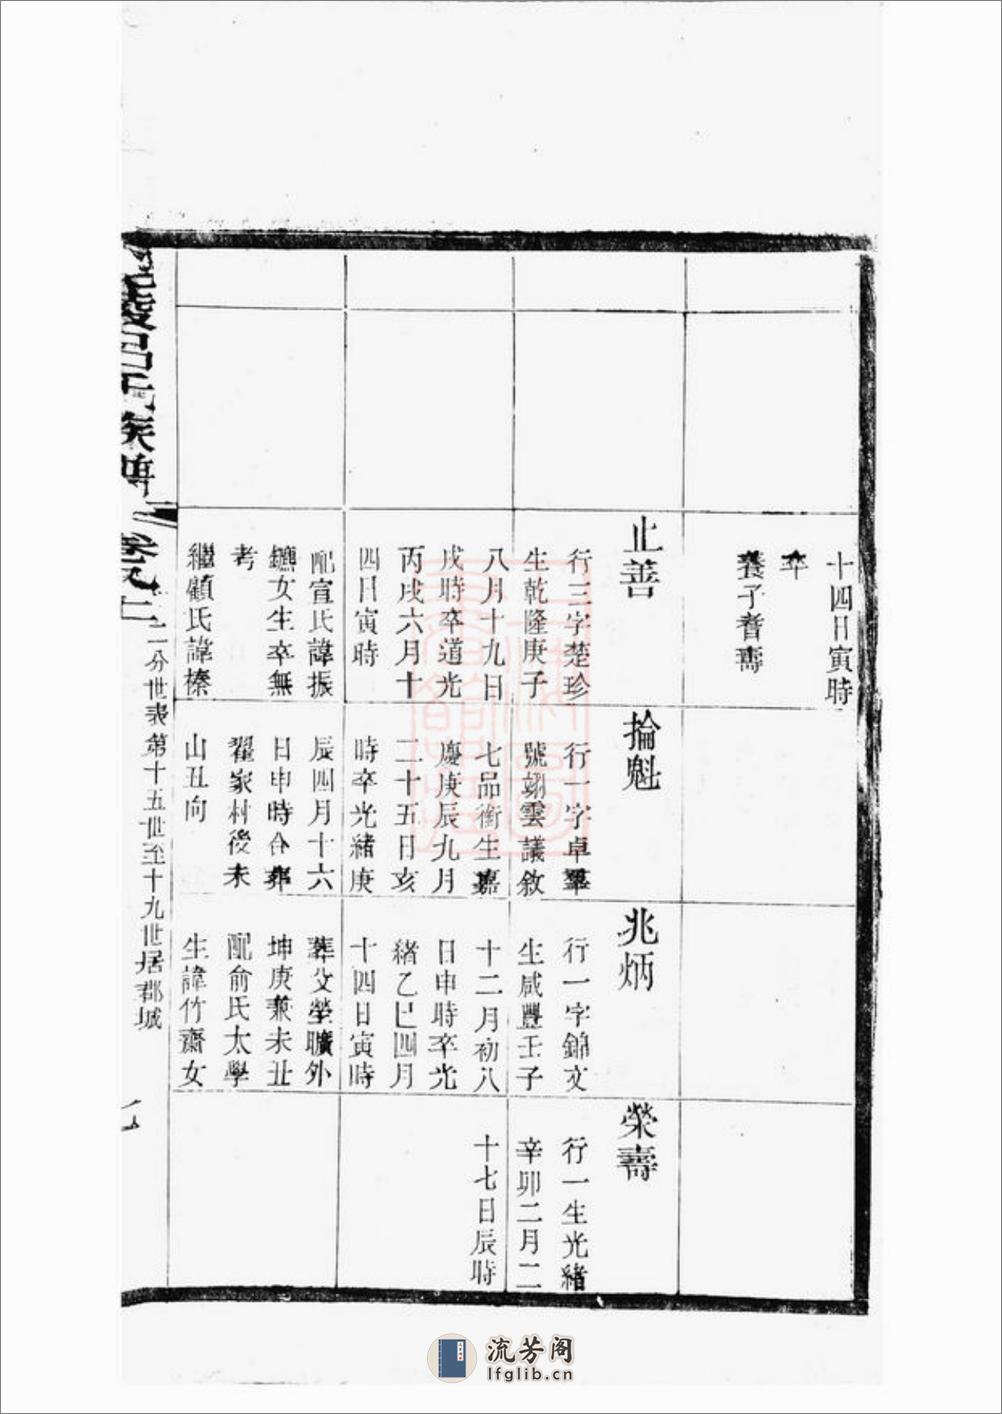 十四日寅時
卒
養子耆壽
止善
行三字楚珍
生乾隆庚子
八月十九日
戌時卒道光
丙戌六月十
四日寅時
配宣氏諱振
鑣女生卒無
考
繼顧氏諱榛
掄魁
行一字卓羣
號翊雲議敘
七品銜生嘉
慶庚辰九月
二十五日亥
時卒光緒庚
辰四月十六
日申時合葬
翟家村後未
山丑向
兆炳
行一字錦文
生咸豐壬子
十二月初八
日申時卒光
緒乙巳四月
十四日寅時
葬父塋曠外
坤庚兼未丑
配俞氏太學
生諱竹齋女
榮壽
行一生光緒
辛卯二月二
十七日辰時
毘陵呂氏族譜
卷九上
二分世表第十五世至十九世居郡城
流芳阁
lfglib.cn